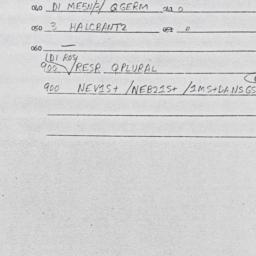 040 DI MESNF/ QGERM 041 0
050 3 HALCBANT2 051 0
060 —
LDI ROY
900 √RESR QPLURAL
900 NEV1S+ /NEB21S+ /1MS+LANSGS